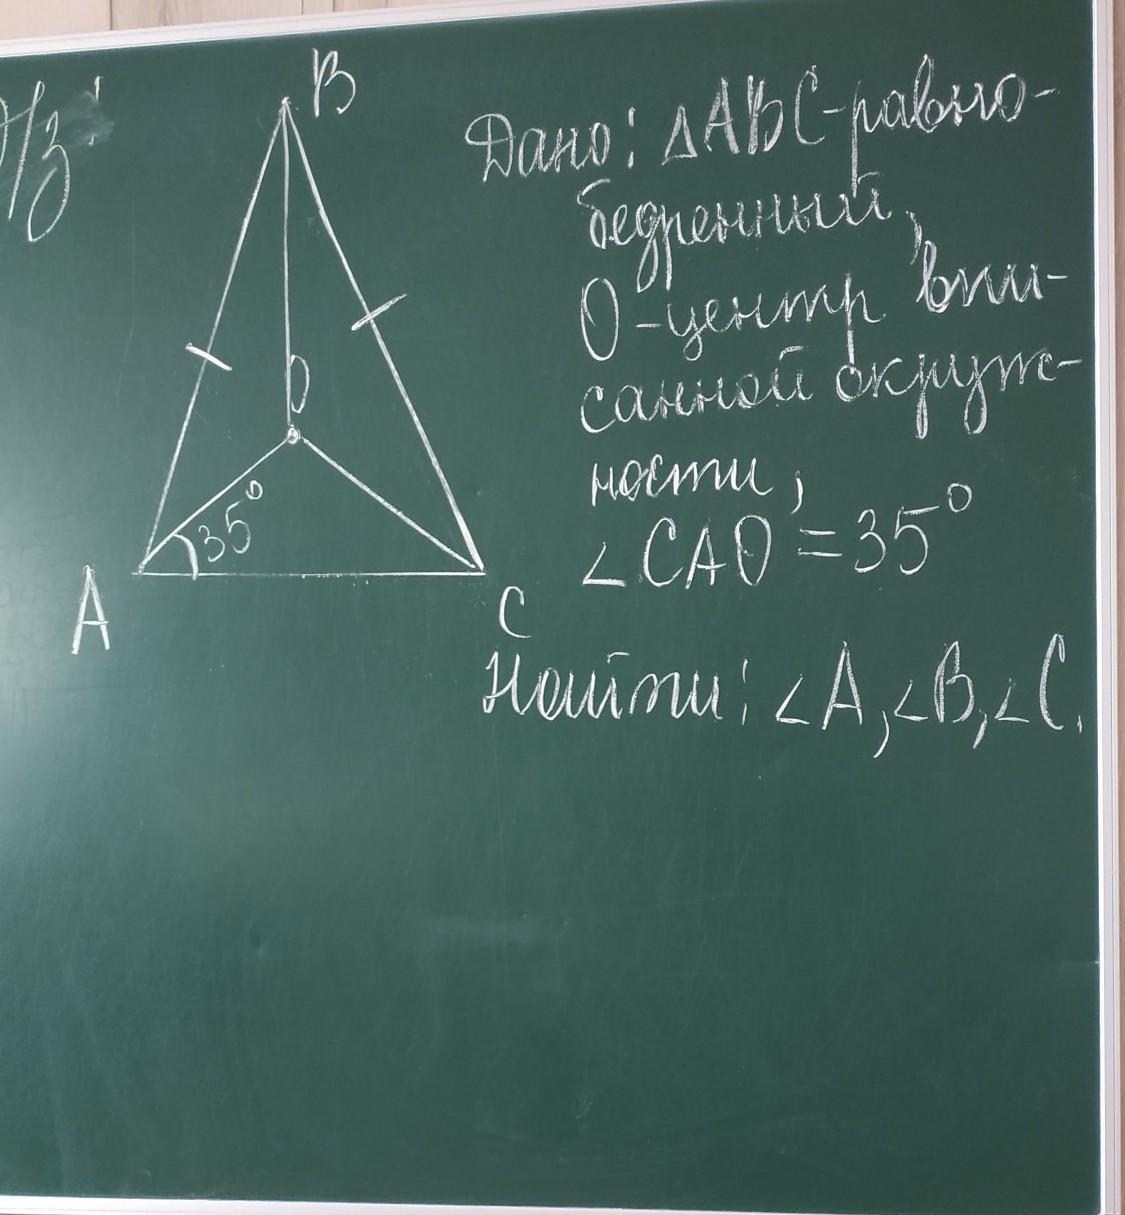 Д/з:
B
O
35°
A
C
Дано: △ABC-равно-
бедренный,
O-центр впи-
санной окруж-
ности,
∠CAO=35°
Найти: ∠A,∠B,∠C.